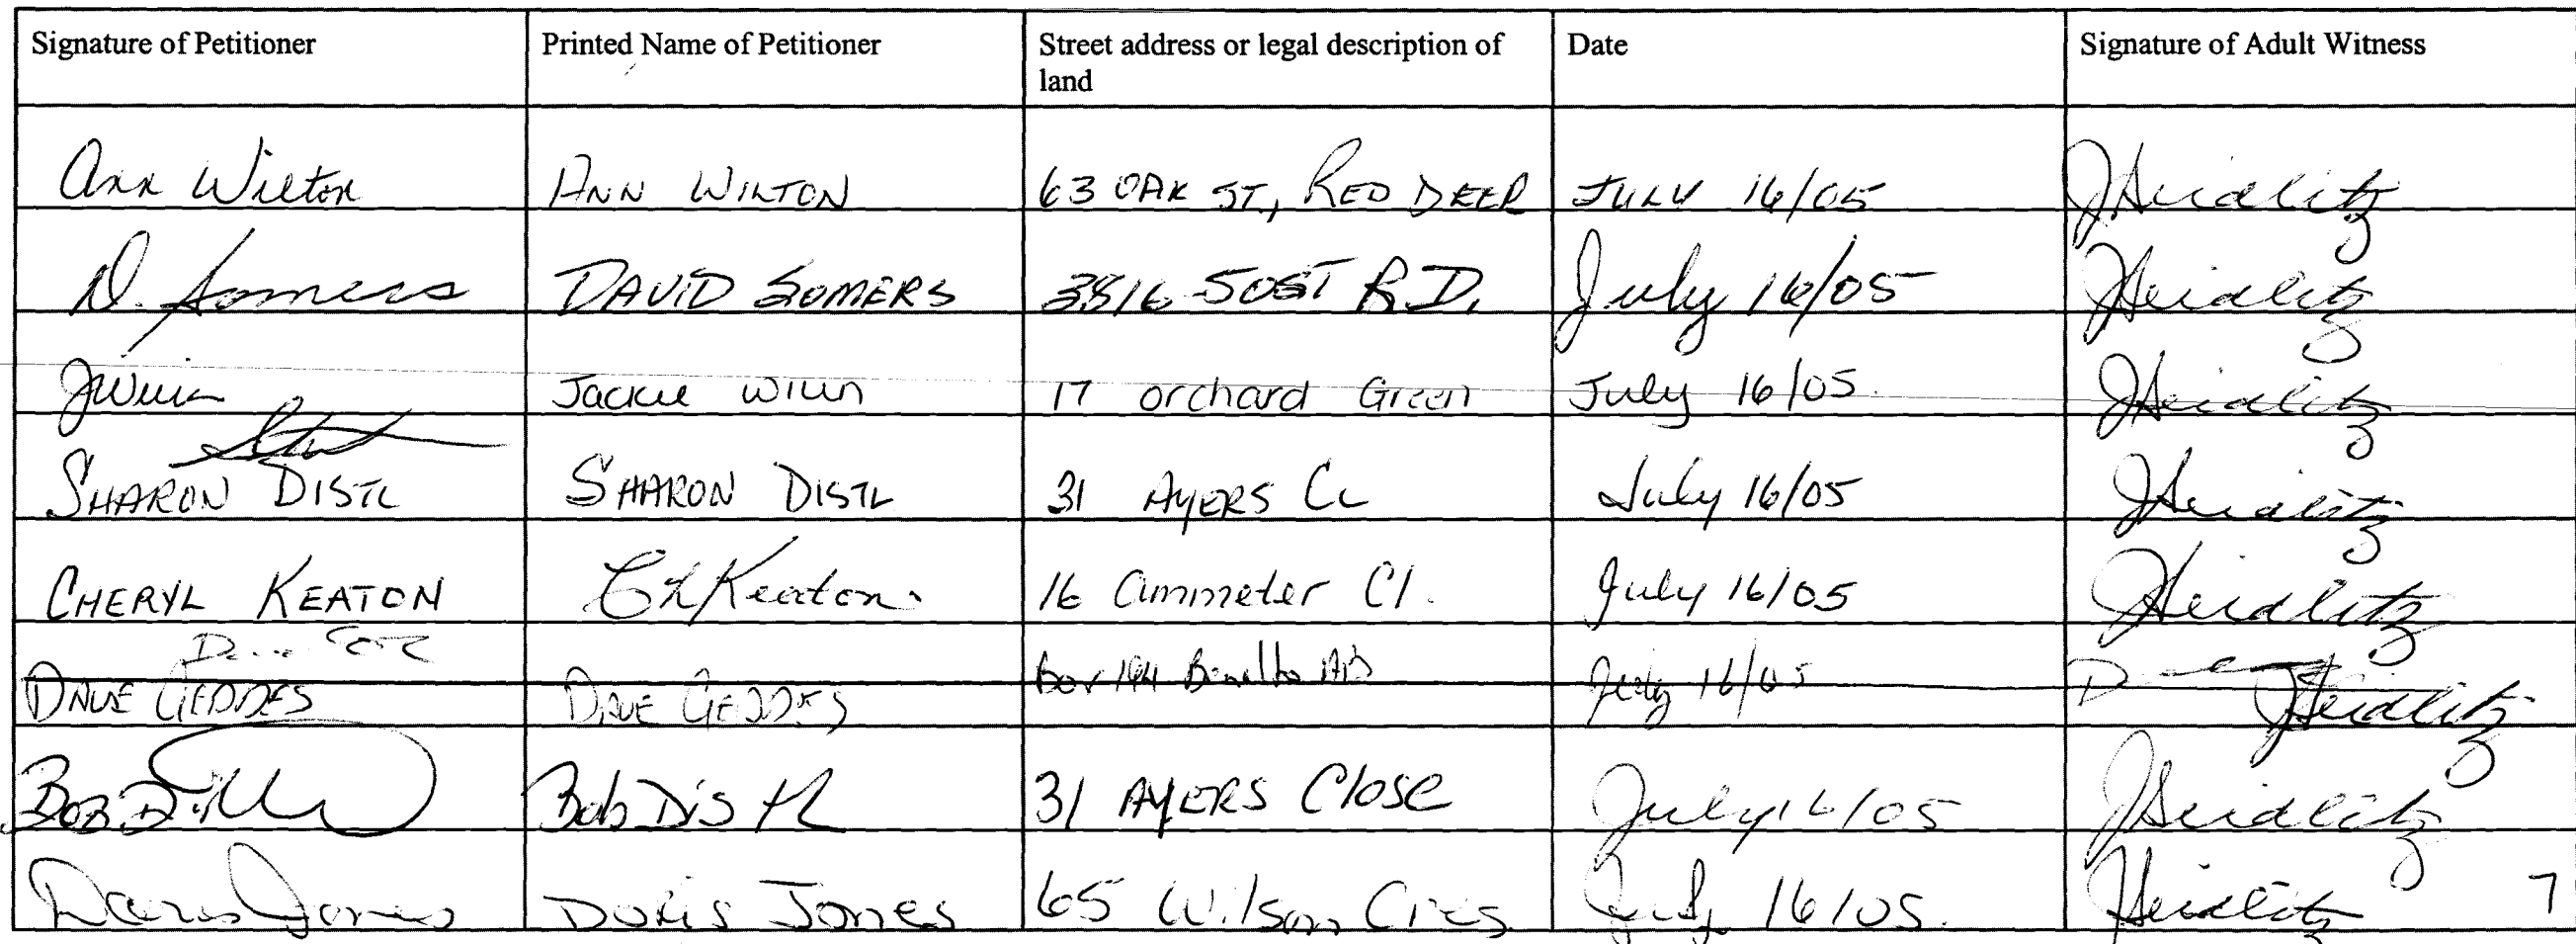 Signature of Petitioner Printed Name of Petitioner Street address or legal description of Date Signature of Adult Witness
land
Ann Wilton ANN WILTON 63 OAK ST, RED DEER JULY 16/05 JHeidlitz
D. Somers DAVID SOMERS 3816 50ST R.D. July 16/05 JHeidlitz
Jackie 17 orchard Green July 16/05. JHeidlitz
SHARON DISTL SHARON DISTL 31 AYERS CL July 16/05 JHeidlitz
CHERYL KEATON CL Keaton. 16 Ammeter Cl. July 16/05 JHeidlitz
DAVE GEDDES DAVE GEDDES Box July 16/05 JHeidlitz
BOB Bob Distl 31 AYERS Close July 16/05 JHeidlitz
Doris Jones Doris Jones 65 Wilson Cres July 16/05. JHeidlitz 7